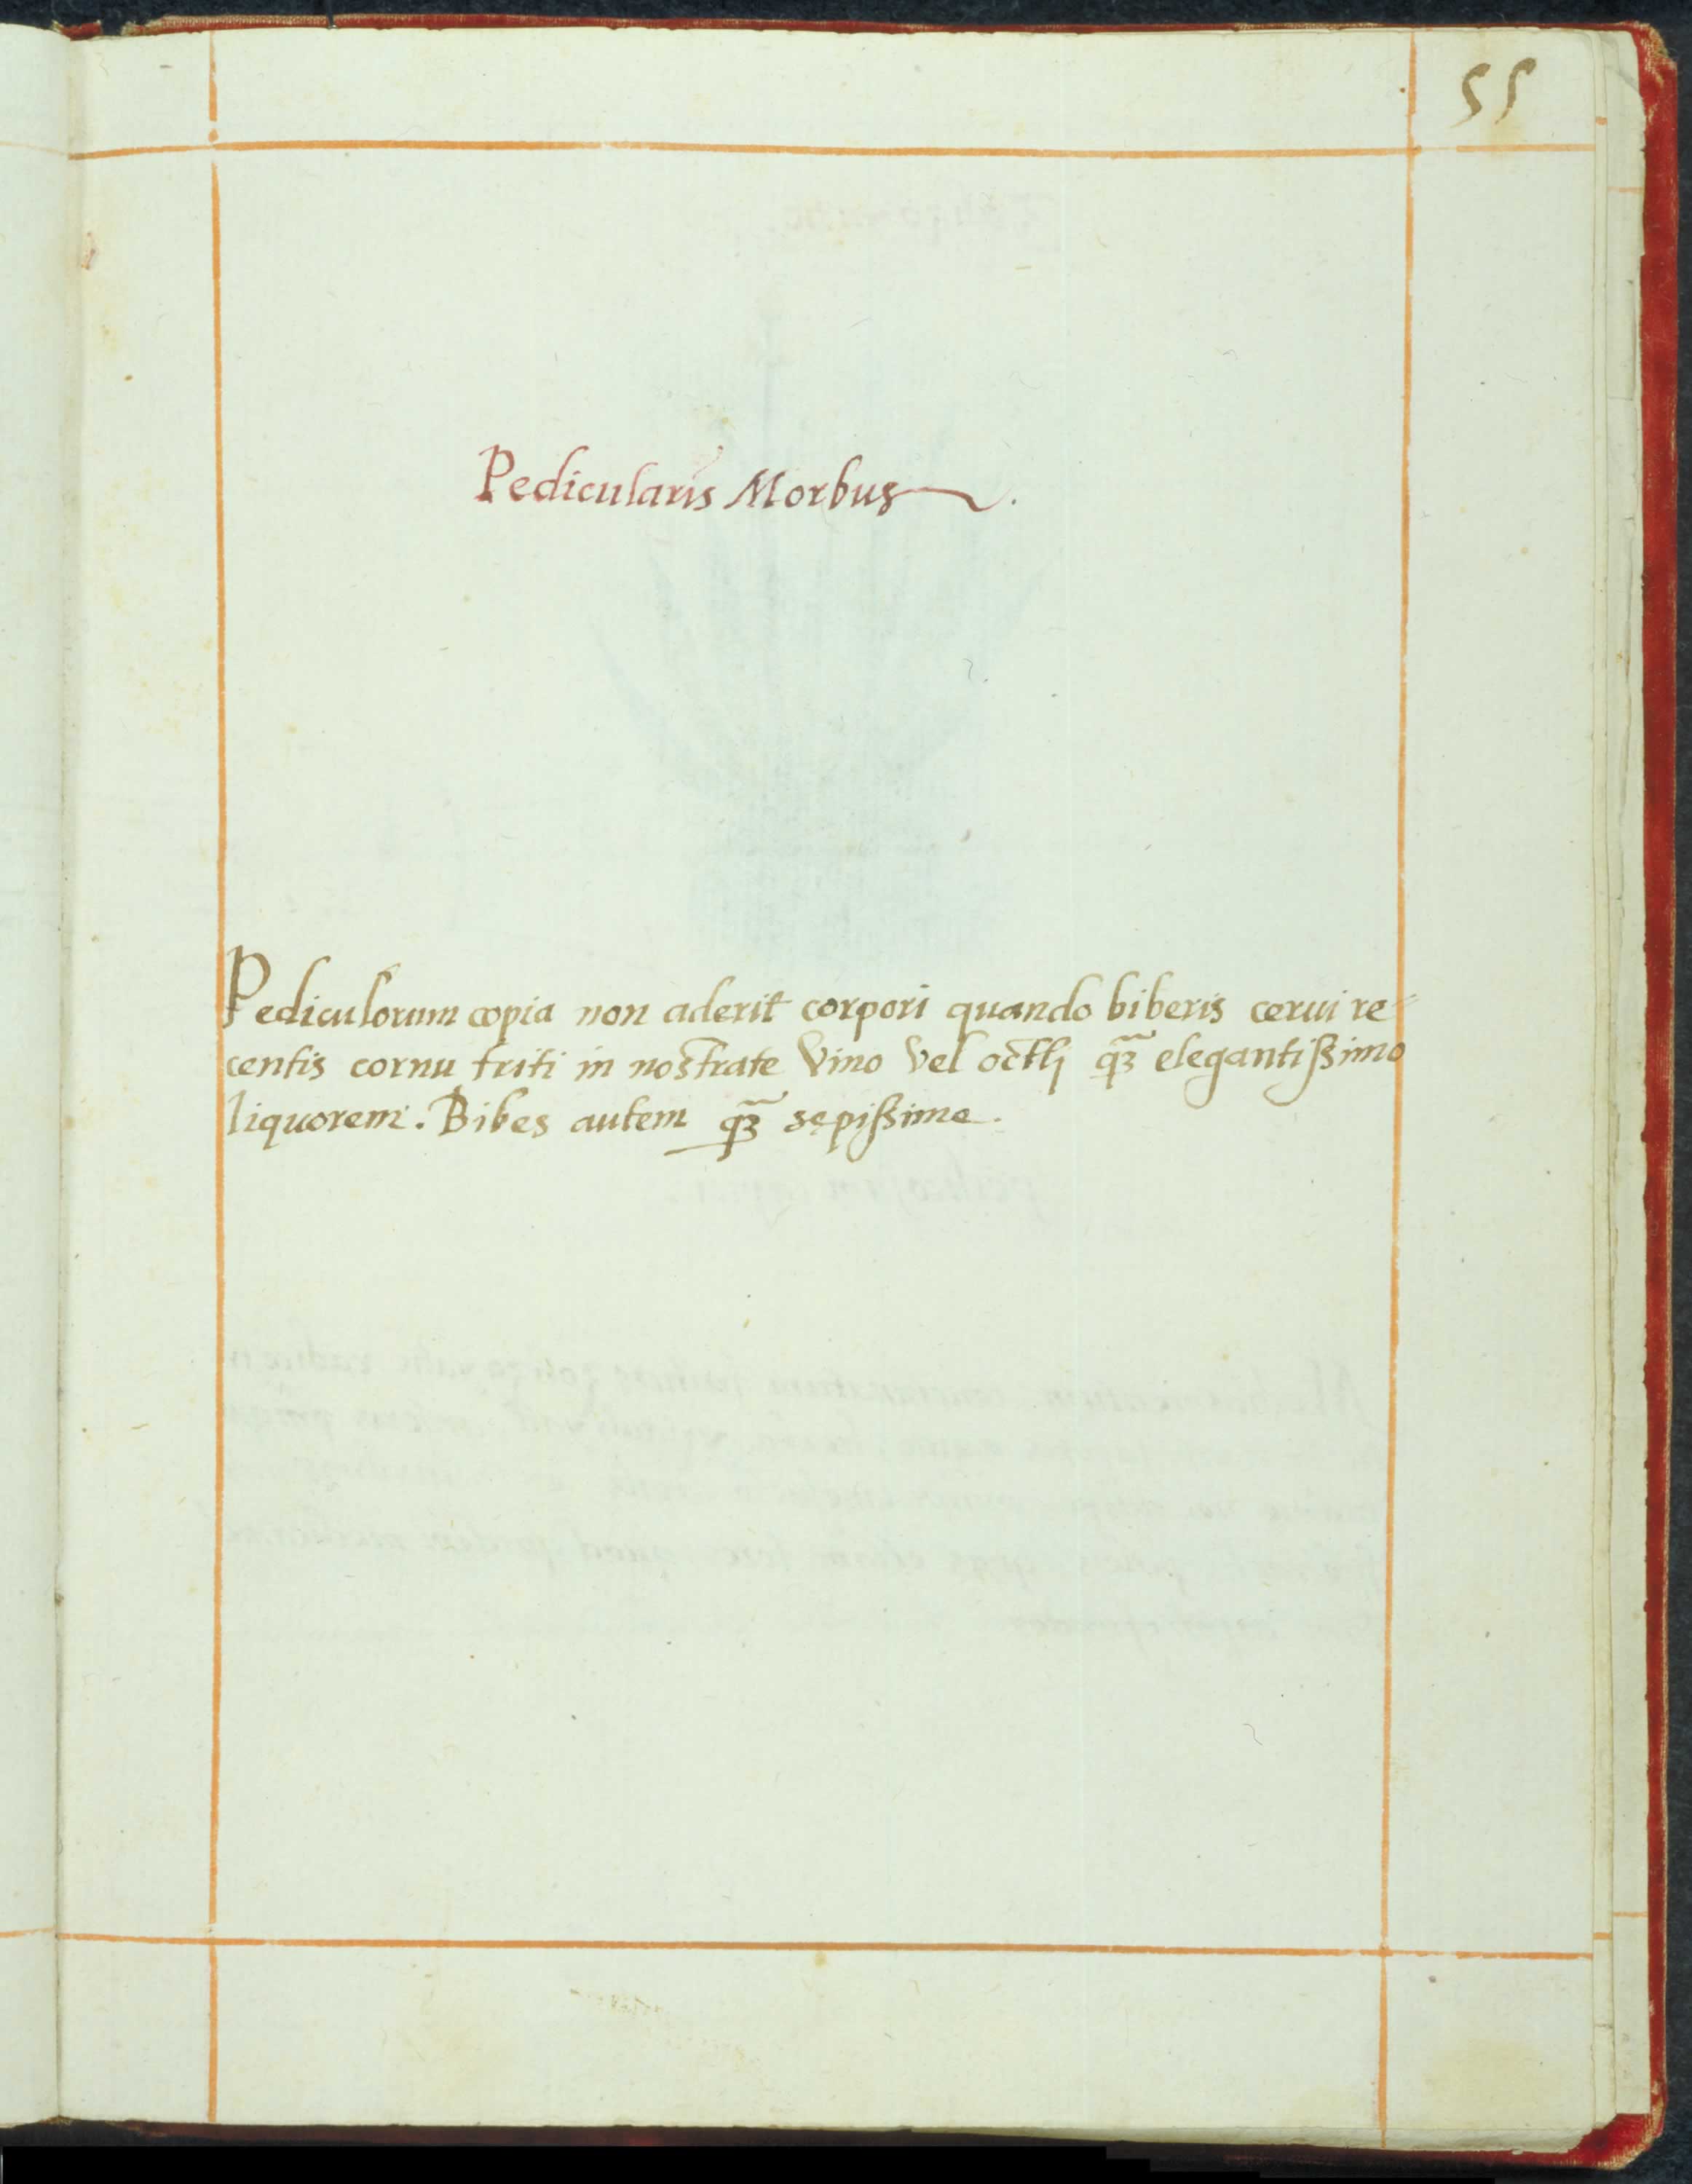 55
Pedicularis Morbus.
Pediculorum copia non aderit corpori quando biberis cerui re-
centis cornu triti in nostrate vino vel octli qȝ̃ elegantißimo
liquorem. Bibes autem qȝ̃ sępißime.